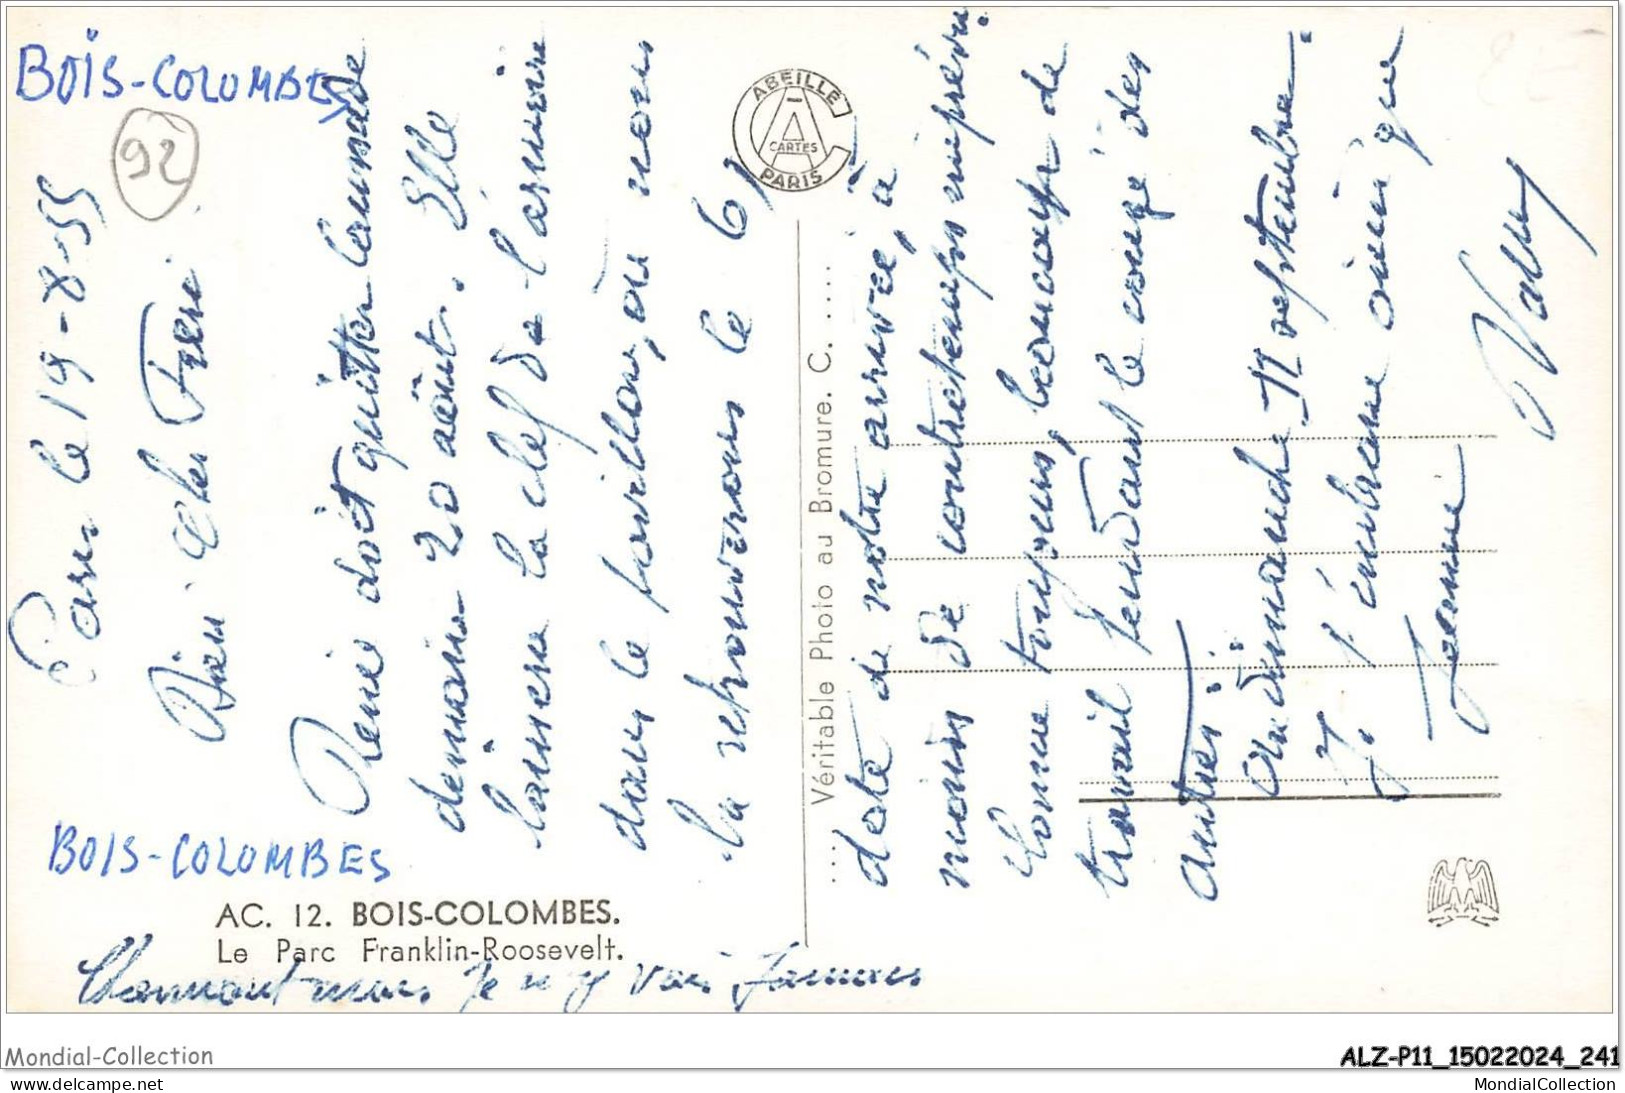 BOIS-COLOMBES
92
Paris le 19-8-55
Bien cher Frère.
Renée doit quitter Laumade
demain 20 août. Elle
laissera la clef de l'armoire
dans le pavillon, où nous
la retrouverons le 6,
date de notre arrivée, à
moins de contretemps imprévu.
donne toujours, beaucoup de
travail pendant le congé des
autres.
Au dimanche 11 septembre.
J. t'embrasse ainsi que
Jeanne
ABEILLE
CARTES
PARIS
Véritable Photo au Bromure. C. ....
BOIS-COLOMBES
AC. 12. BOIS-COLOMBES.
Le Parc Franklin-Roosevelt.
Je n'y vais jamais
Mondial-Collection
ALZ-P11_15022024_241
www.delcampe.net
MondialCollection